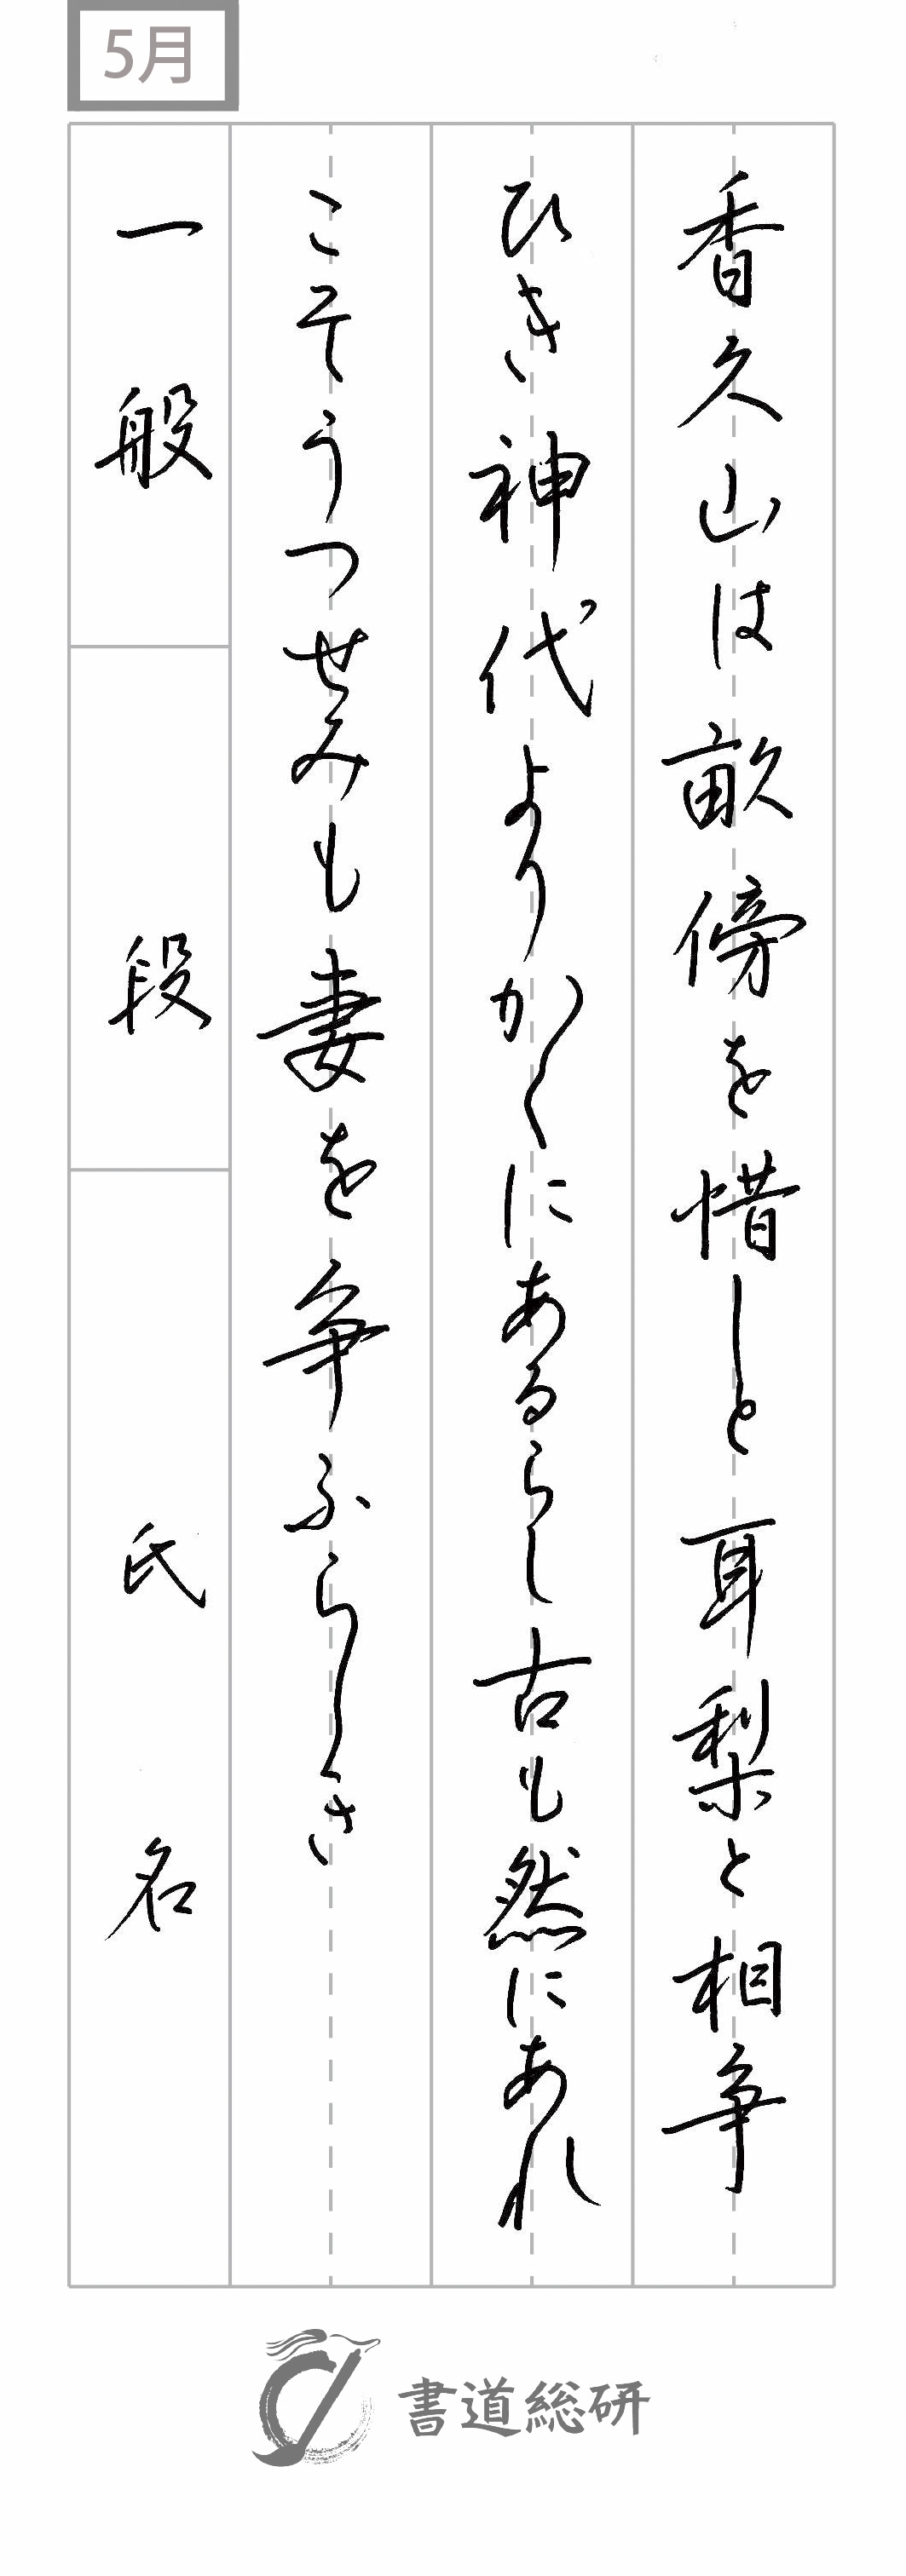 5月
香久山は畝傍を惜しと耳梨と相争
ひき神代よりかくにあるらし古も然にあれ
こそうつせみも妻を争ふらしき
一般 段 氏名
書道総研